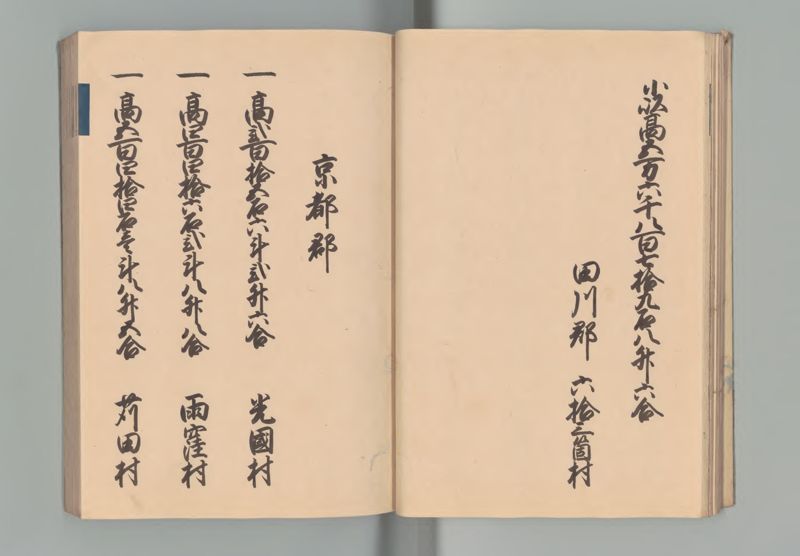 小以高五万六千八百七拾九石八升六合
田川郡 六拾三箇村
京都郡
一 高弐百拾五石六斗弐升六合 光國村
一 高四百四拾六石弐斗八升八合 雨窪村
一 高五百四拾四石壱斗八升五合 苅田村